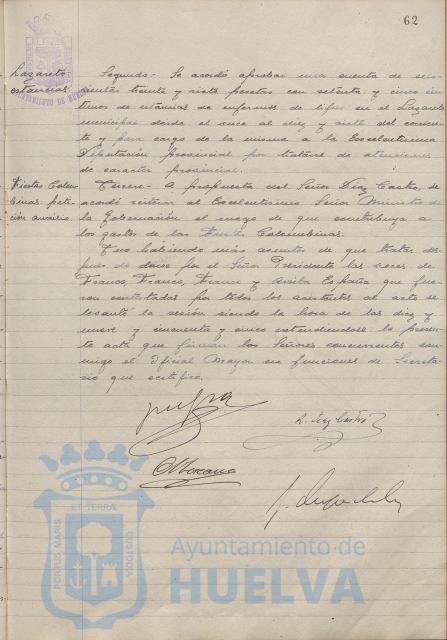 62
Lazareto
estancias.
Segundo.- Se acordó aprobar una cuenta de seis-
cientas treinta y siete pesetas con setenta y cinco cén-
timos de estancias de enfermos de tifus en el Lazareto
municipal desde el once al diez y siete del corrien-
te y pasar cargo de la misma a la Excelentísima
Diputación Provincial por tratarse de atenciones
de caracter provincial.
Fiestas Colom-
binas: peti-
ción auxilio.
Tercero.- A propuesta del Señor Díaz Castro, se
acordó reiterar al Excelentísimo Señor Ministro de
la Gobernación el ruego de que contribuya a
los gastos de las Fiestas Colombinas.
Y no habiendo más asuntos de que tratar des-
pués de darse por el Señor Presidente las voces de
Franco, Franco, Franco y Arriba España que fue-
ron contestadas por todos los asistentes al acto se
levantó la sesión siendo la hora de las diez y
nueve y cincuenta y cinco extendiéndose la presen-
te acta que firman los Señores concurrentes con-
migo el Oficial Mayor en funciones de Secreta-
rio que certifico.
PORTUS MARIS
ET TERRA
CUSTODIA
Ayuntamiento de
HUELVA